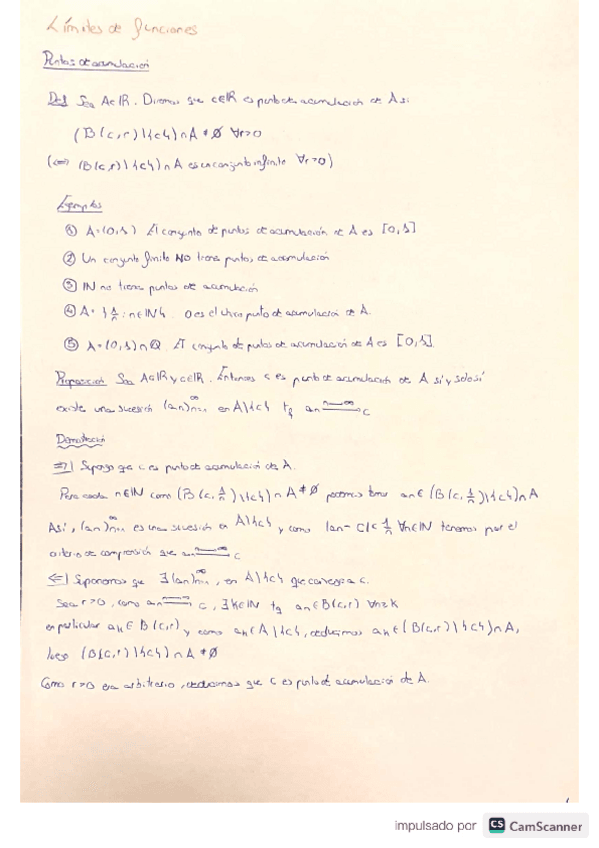 Límites de funciones
Puntos de acumulación
Def Sea A⊂ℝ. Diremos que c∈ℝ es punto de acumulación de A si
(B(c,r)\{c})∩A≠∅ ∀r>0
(⇔ (B(c,r)\{c})∩A es un conjunto infinito ∀r>0)
Ejemplos
① A=(0,1) El conjunto de puntos de acumulación de A es [0,1]
② Un conjunto finito NO tiene puntos de acumulación
③ ℕ no tiene puntos de acumulación
④ A={1/n : n∈ℕ}. 0 es el único punto de acumulación de A.
⑤ A=(0,1)∩ℚ. El conjunto de puntos de acumulación de A es [0,1].
Proposición Sea A⊂ℝ y c∈ℝ. Entonces c es punto de acumulación de A si y solo si
existe una sucesión (an)n=1^∞ en A\{c} tq an n→∞ c
Demostración
⇒] Supongo que c es punto de acumulación de A.
Para cada n∈ℕ como (B(c,1/n)\{c})∩A≠∅ podemos tomar an∈(B(c,1/n)\{c})∩A
Así, (an)n=1^∞ es una sucesión en A\{c} y como |an-c|<1/n ∀n∈ℕ tenemos por el
criterio de compresión que an n→∞ c
⇐] Suponemos que ∃(an)n=1^∞, en A\{c} que converge a c.
Sea r>0, como an n→∞ c, ∃k∈ℕ tq an∈B(c,r) ∀n≥k
en particular ak∈B(c,r) y como ak∈A\{c}, deducimos ak∈(B(c,r)\{c})∩A,
luego (B(c,r)\{c})∩A≠∅
Como r>0 era arbitrario, deducimos que c es punto de acumulación de A.
impulsado por CS CamScanner